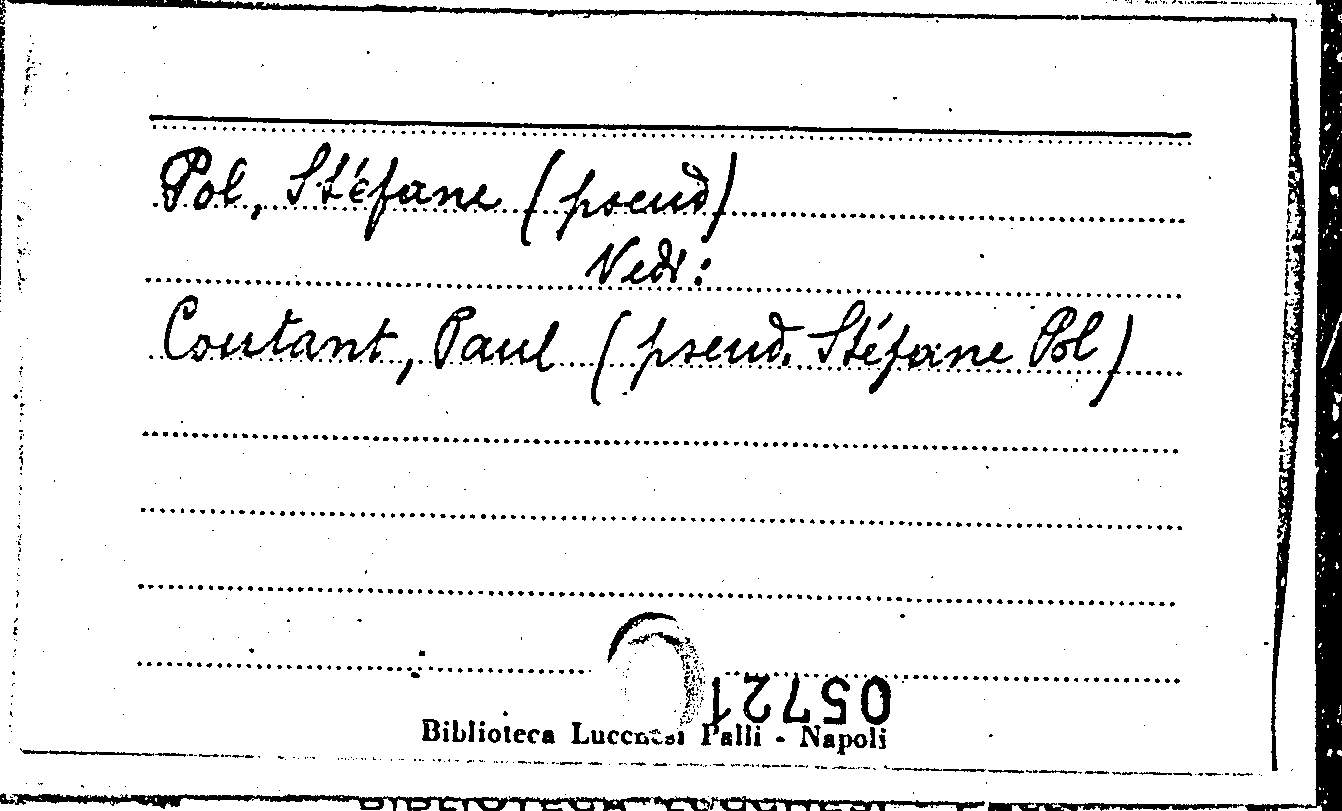 Pol, Stéfane (pseud)
Vedi:
Coutant, Paul (pseud. Stéfane Pol)
05721
Biblioteca Lucchesi Palli - Napoli
BIBLIOTECA LUCCHESI